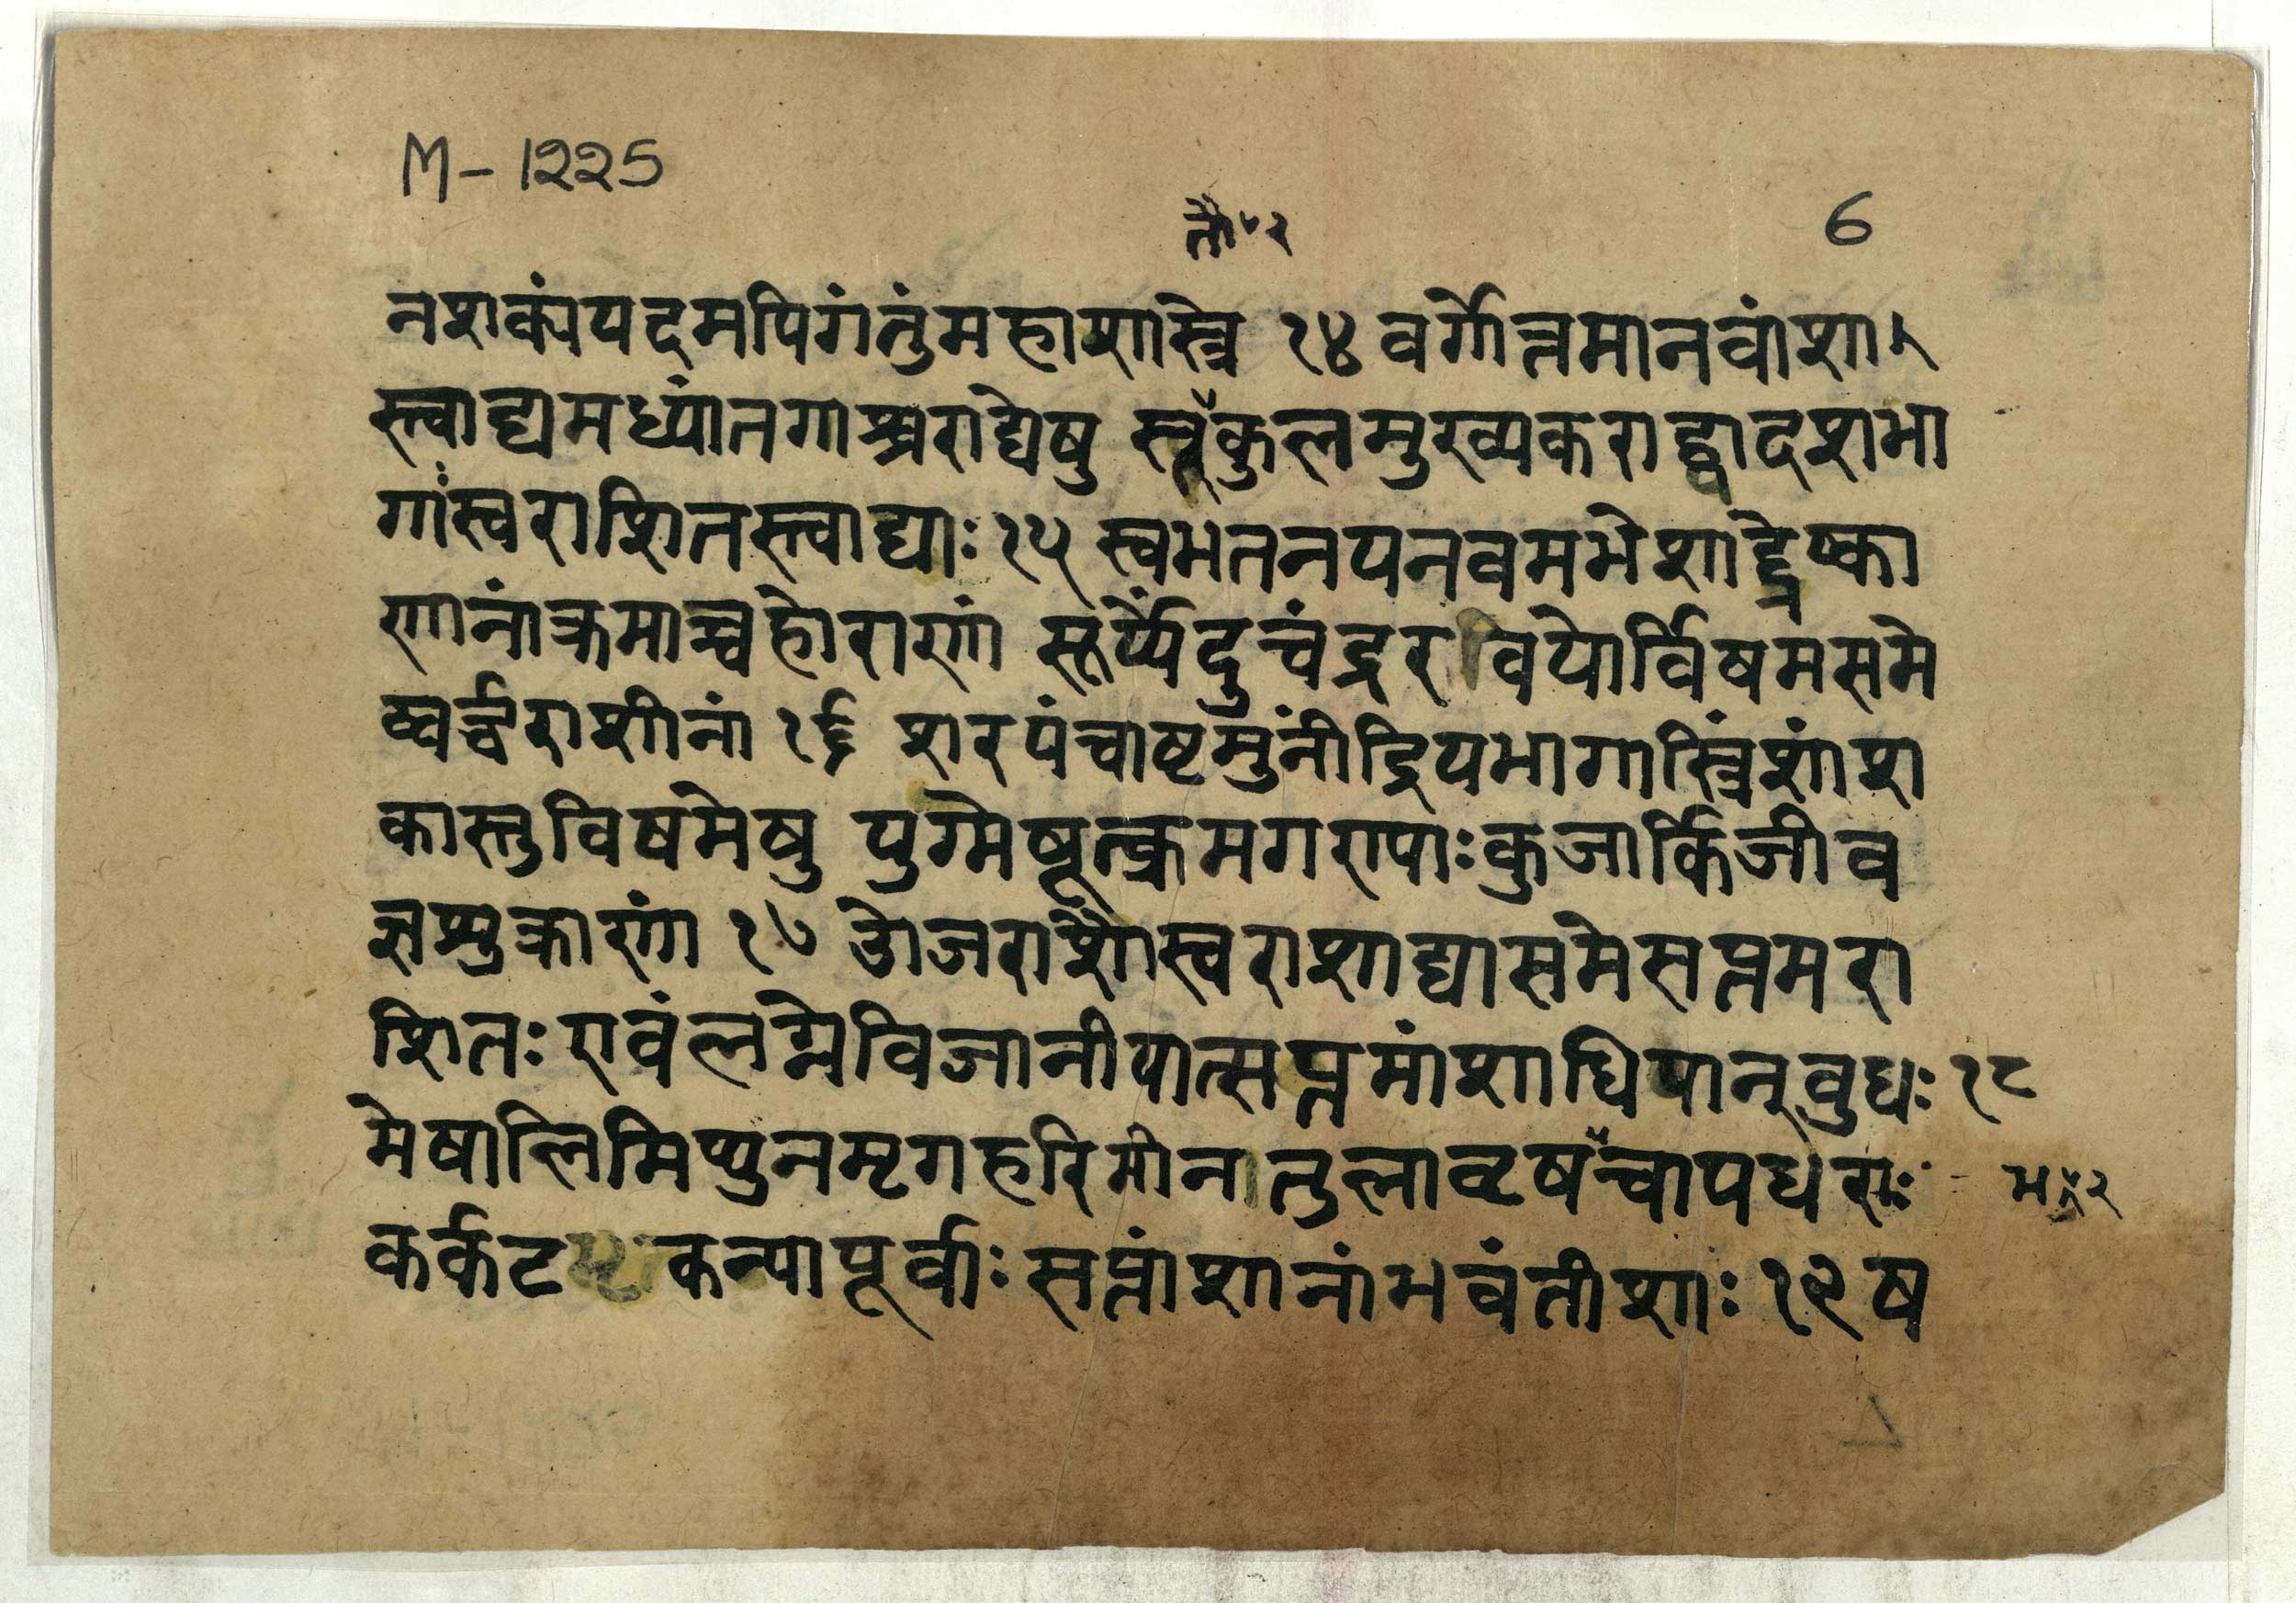 M-1225
तौ॰२
6
नशक्यंपदमपिगंतुंमहाशास्त्रे १४ वर्गोत्तमानवांशा
स्त्वाद्यमध्यांतगाश्चराद्येषु स्तूकुलमुख्यकराद्द्वादशभा
गांस्वराशितस्त्वाद्याः १५ स्वभतनयनवमभेशाद्द्रेष्का
णानांक्रमाच्चहोराणां सूर्य्येंदुचंद्ररवियोर्विषमसमे
ष्वर्द्धराशीनां १६ शरपंचाष्टमुंनीद्रियभागास्त्रिंशांश
कास्तुविषमेषु युग्मेषूत्क्रमगणपाःकुजार्किजीव
ज्ञशुक्राणां १७ ओजराशौस्वराशाद्यासमेसप्तमरा
शितः एवंलग्नेविजानीयात्सप्तमांशाधिपान्बुधः १८
मेषालिमिथुनमृगहरिमीनतुलावृषचापधराः
कर्कट कन्यापूर्वाः सप्तांशानांभवंतीशाः १९ ष